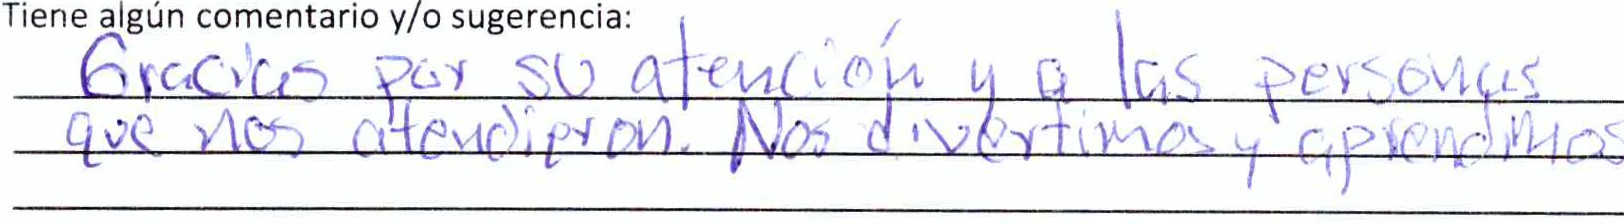 Tiene algún comentario y/o sugerencia:
Gracias por su atención y a las personas
que nos atendieron. Nos divertimos y aprendimos